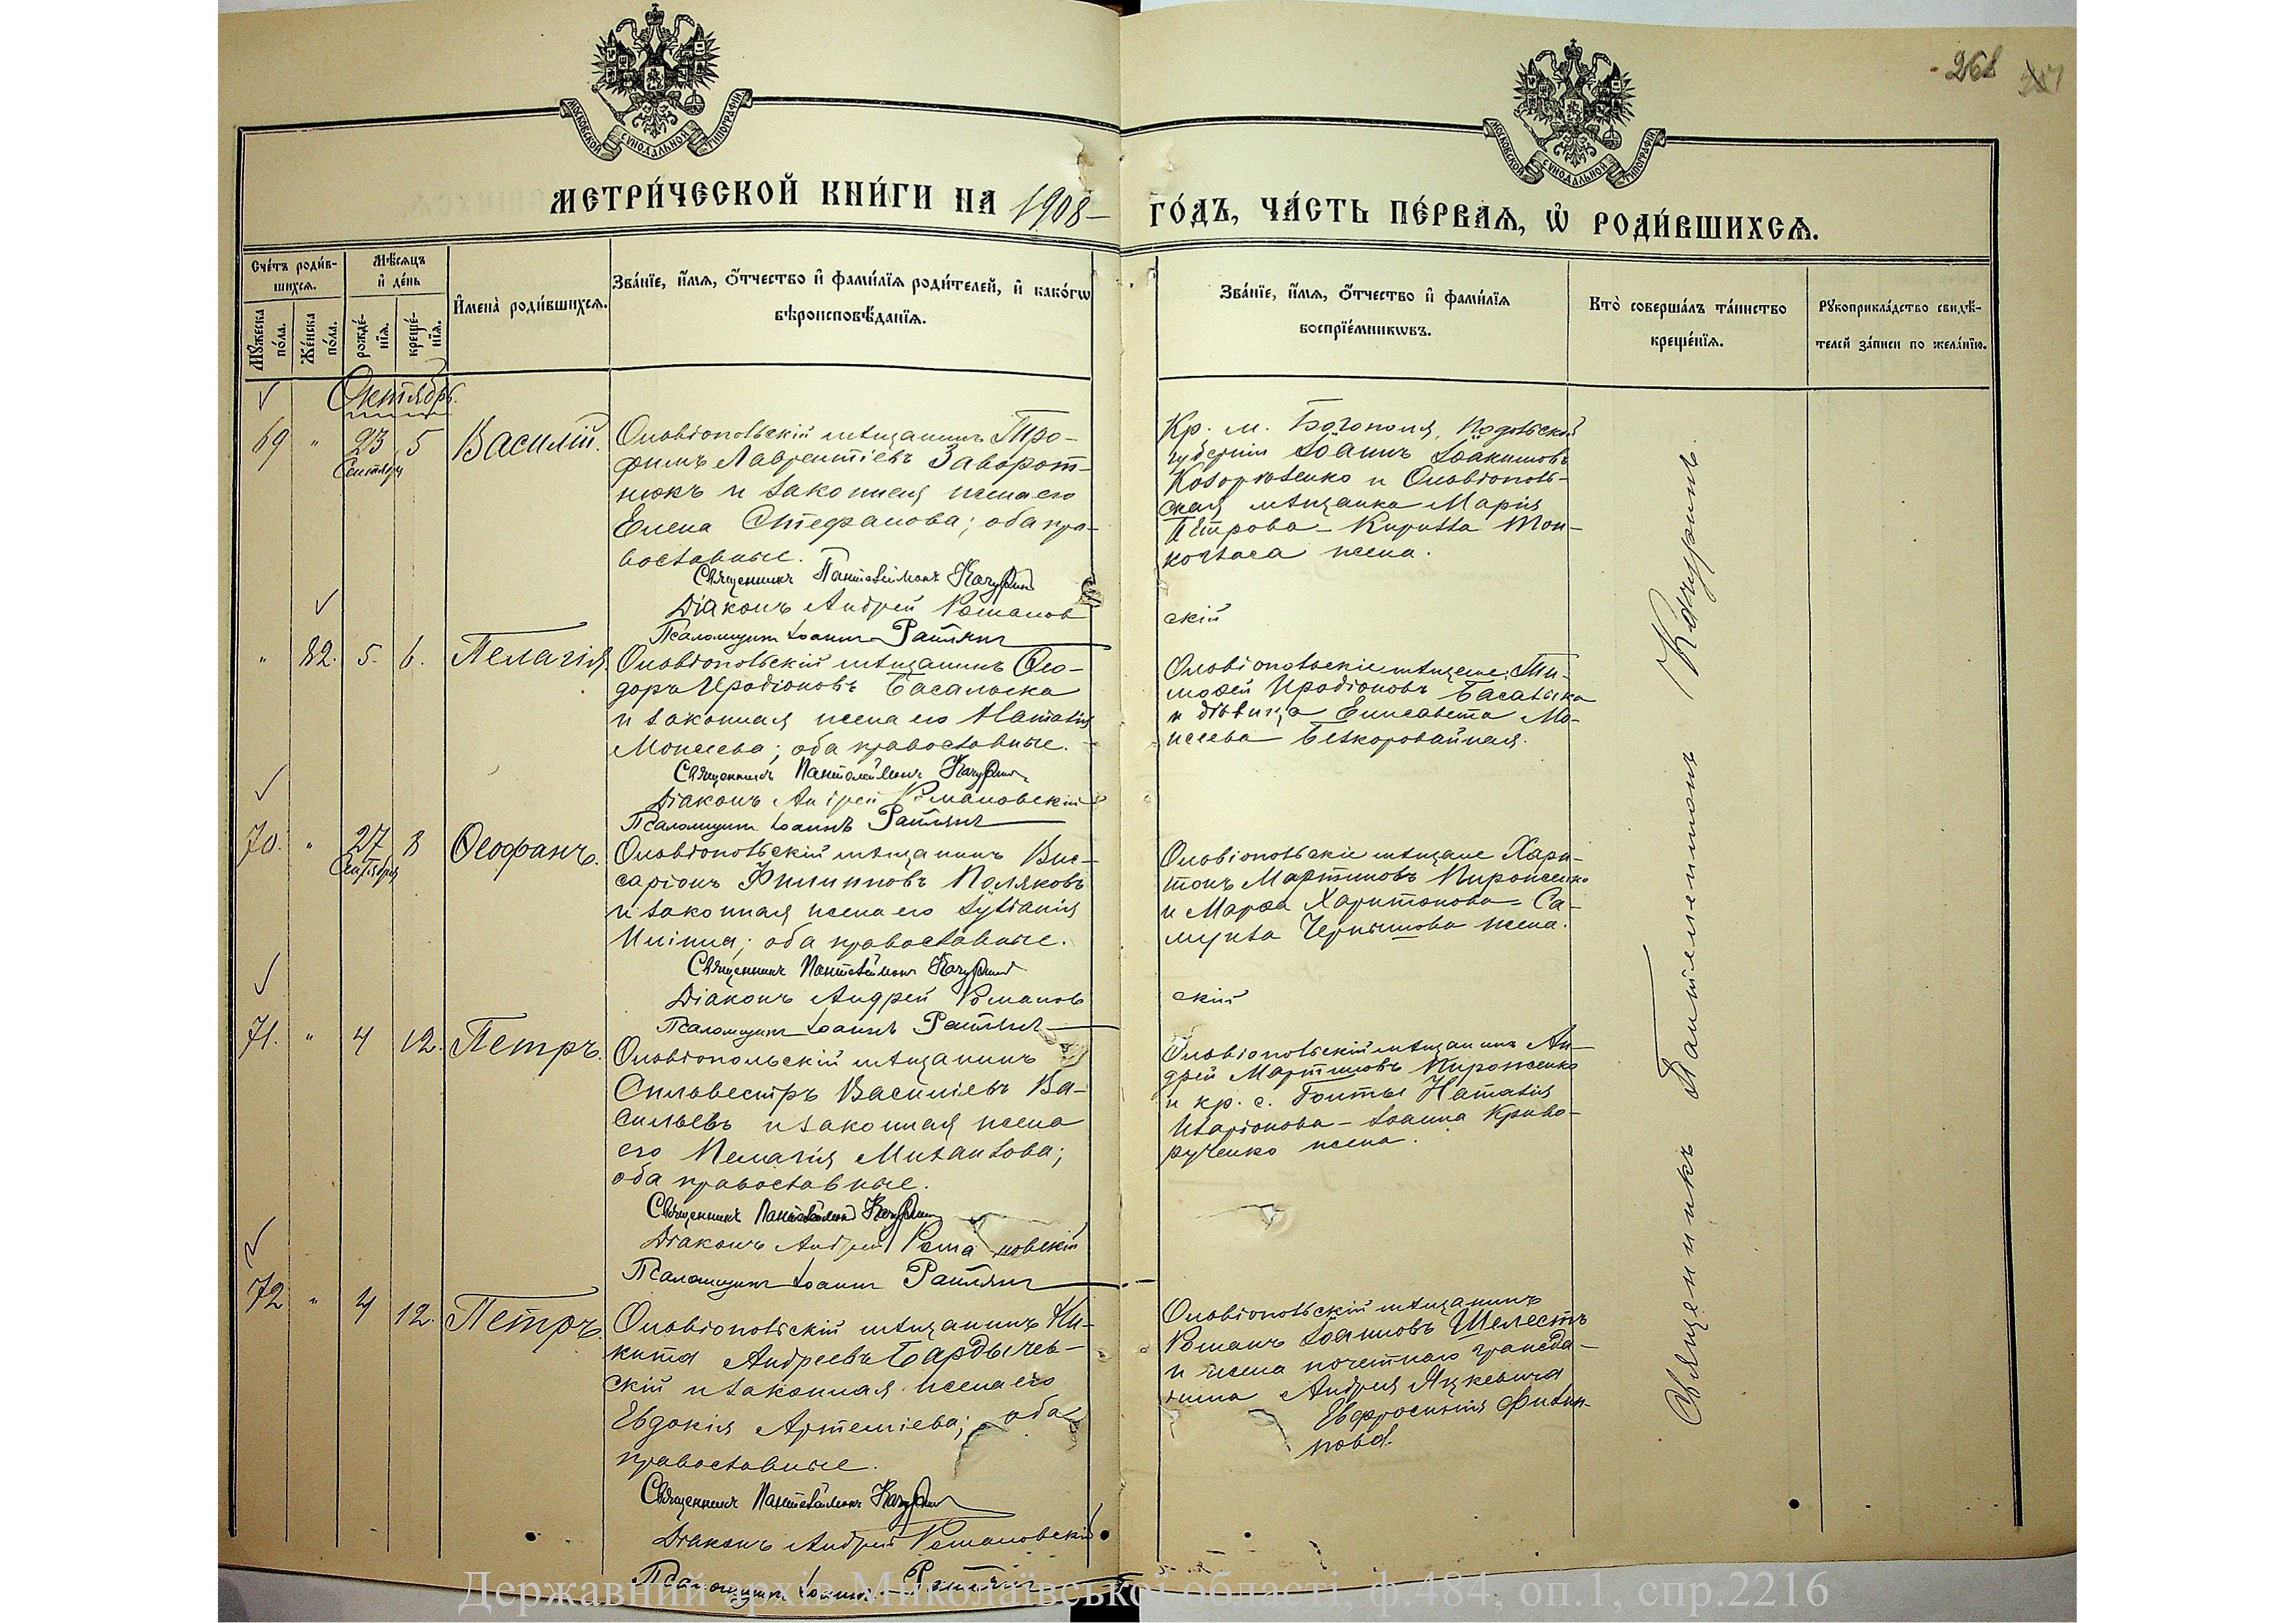 268
МОСКОВСКОЙ СѴНОДАЛЬНОЙ ТИПОГРАФІИ
МОСКОВСКОЙ СѴНОДАЛЬНОЙ ТИПОГРАФІИ
МЕТРИ́ЧЕСКОЙ КНИ́ГИ НА 1908
ГО́ДЪ, ЧА́СТЬ ПЕ́РВАѦ, Ѡ҆ РОДИ́ВШИХСѦ.
Сче́тъ роди́в-
шихсѧ.
Мѣ́сѧцъ
и҆ де́нь
Мꙋ́жеска
по́ла.
Же́нска
по́ла.
рожде́-
нїѧ.
креще́-
нїѧ.
И҆мена̀ роди́вшихсѧ.
Зва́нїе, и҆́мѧ, ѻ҆́тчество и҆ фами́лїѧ роди́телей, и҆ како́гѡ
вѣроисповѣ́данїѧ.
Зва́нїе, и҆́мѧ, ѻ҆́тчество и҆ фами́лїѧ
воспрїе́мникѡвъ.
Кто̀ соверша́лъ та́инство
креще́нїѧ.
Рꙋкоприкла́дство свидѣ́-
телей за́писи по жела́нїю.
Октябрь.
69 " 23 5 Василій.
Сентября
Ольвіопольскій мѣщанинъ Тро-
фимъ Лаврентіевъ Заворот-
нюкъ и законная жена его
Елена Стефанова; оба пра-
вославные.
Священникъ Пантелеймонъ Качуринъ
Діаконъ Андрей Романов
Псаломщикъ Іоаннъ
Кр. м. Богополя, Подольской
губерніи Іоаннъ Іоакимовъ
и Ольвіополь-
ская мѣщанка Марія
Петрова Кирилла Мон-
жена.
скій
" 82. 5. 6. Пелагія
Ольвіопольскій мѣщанинъ Ѳео-
доръ Иродіоновъ Басалыка
и законная жена его Наталія
Моисеева; оба православные.
Священникъ Пантелеймонъ Качуринъ
Діаконъ Андрей Романовскій
Псаломщикъ Іоаннъ
Ольвіопольскіе мѣщане: Ти-
моѳей Иродіоновъ Басалыка
и дѣвица Елисавета Мо-
исеева Безкоровайная.
70. " 27 8 Ѳеофанъ.
Сентября
Ольвіопольскій мѣщанинъ Вис-
саріонъ Филипповъ Поляковъ
и законная жена его Іуліанія
Ильина; оба православные.
Священникъ Пантелеймонъ Качуринъ
Діаконъ Андрей Романов
Псаломщикъ Іоаннъ
Ольвіопольскіе мѣщане Хари-
тонъ Мартиновъ Пироженко
и Марѳа Харитонова Са-
муила Чернышова жена.
скій
71. " 4 12. Петръ.
Ольвіопольскій мѣщанинъ
Сильвестръ Василіевъ Ва-
сильевъ и законная жена
его Пелагія Михаилова;
оба православные.
Священникъ Пантелеймонъ Качуринъ
Діаконъ Андрей Романовскій
Псаломщикъ Іоаннъ
Ольвіопольскій мѣщанинъ Ан-
дрей Мартиновъ Пироженко
и кр. с. Голты Наталія
Иларіонова Іоанна Криво-
рученко жена.
72 " 4 12. Петръ.
Ольвіопольскій мѣщанинъ Ни-
кита Андреевъ Бардычев-
скій и законная жена его
Евдокія Артеміева; оба
православные.
Священникъ Пантелеймонъ Качуринъ
Діаконъ Андрей Романовскій
Псаломщикъ Іоаннъ
Ольвіопольскій мѣщанинъ
Романъ Іоанновъ Шелестъ
и жена почетнаго гражда-
нина Андрея Яцкевича
Евфросинія Филип-
пова.
Священникъ Пантелеимонъ Качуринъ.
Державний архів Миколаївської області, ф.484, оп.1, спр.2216